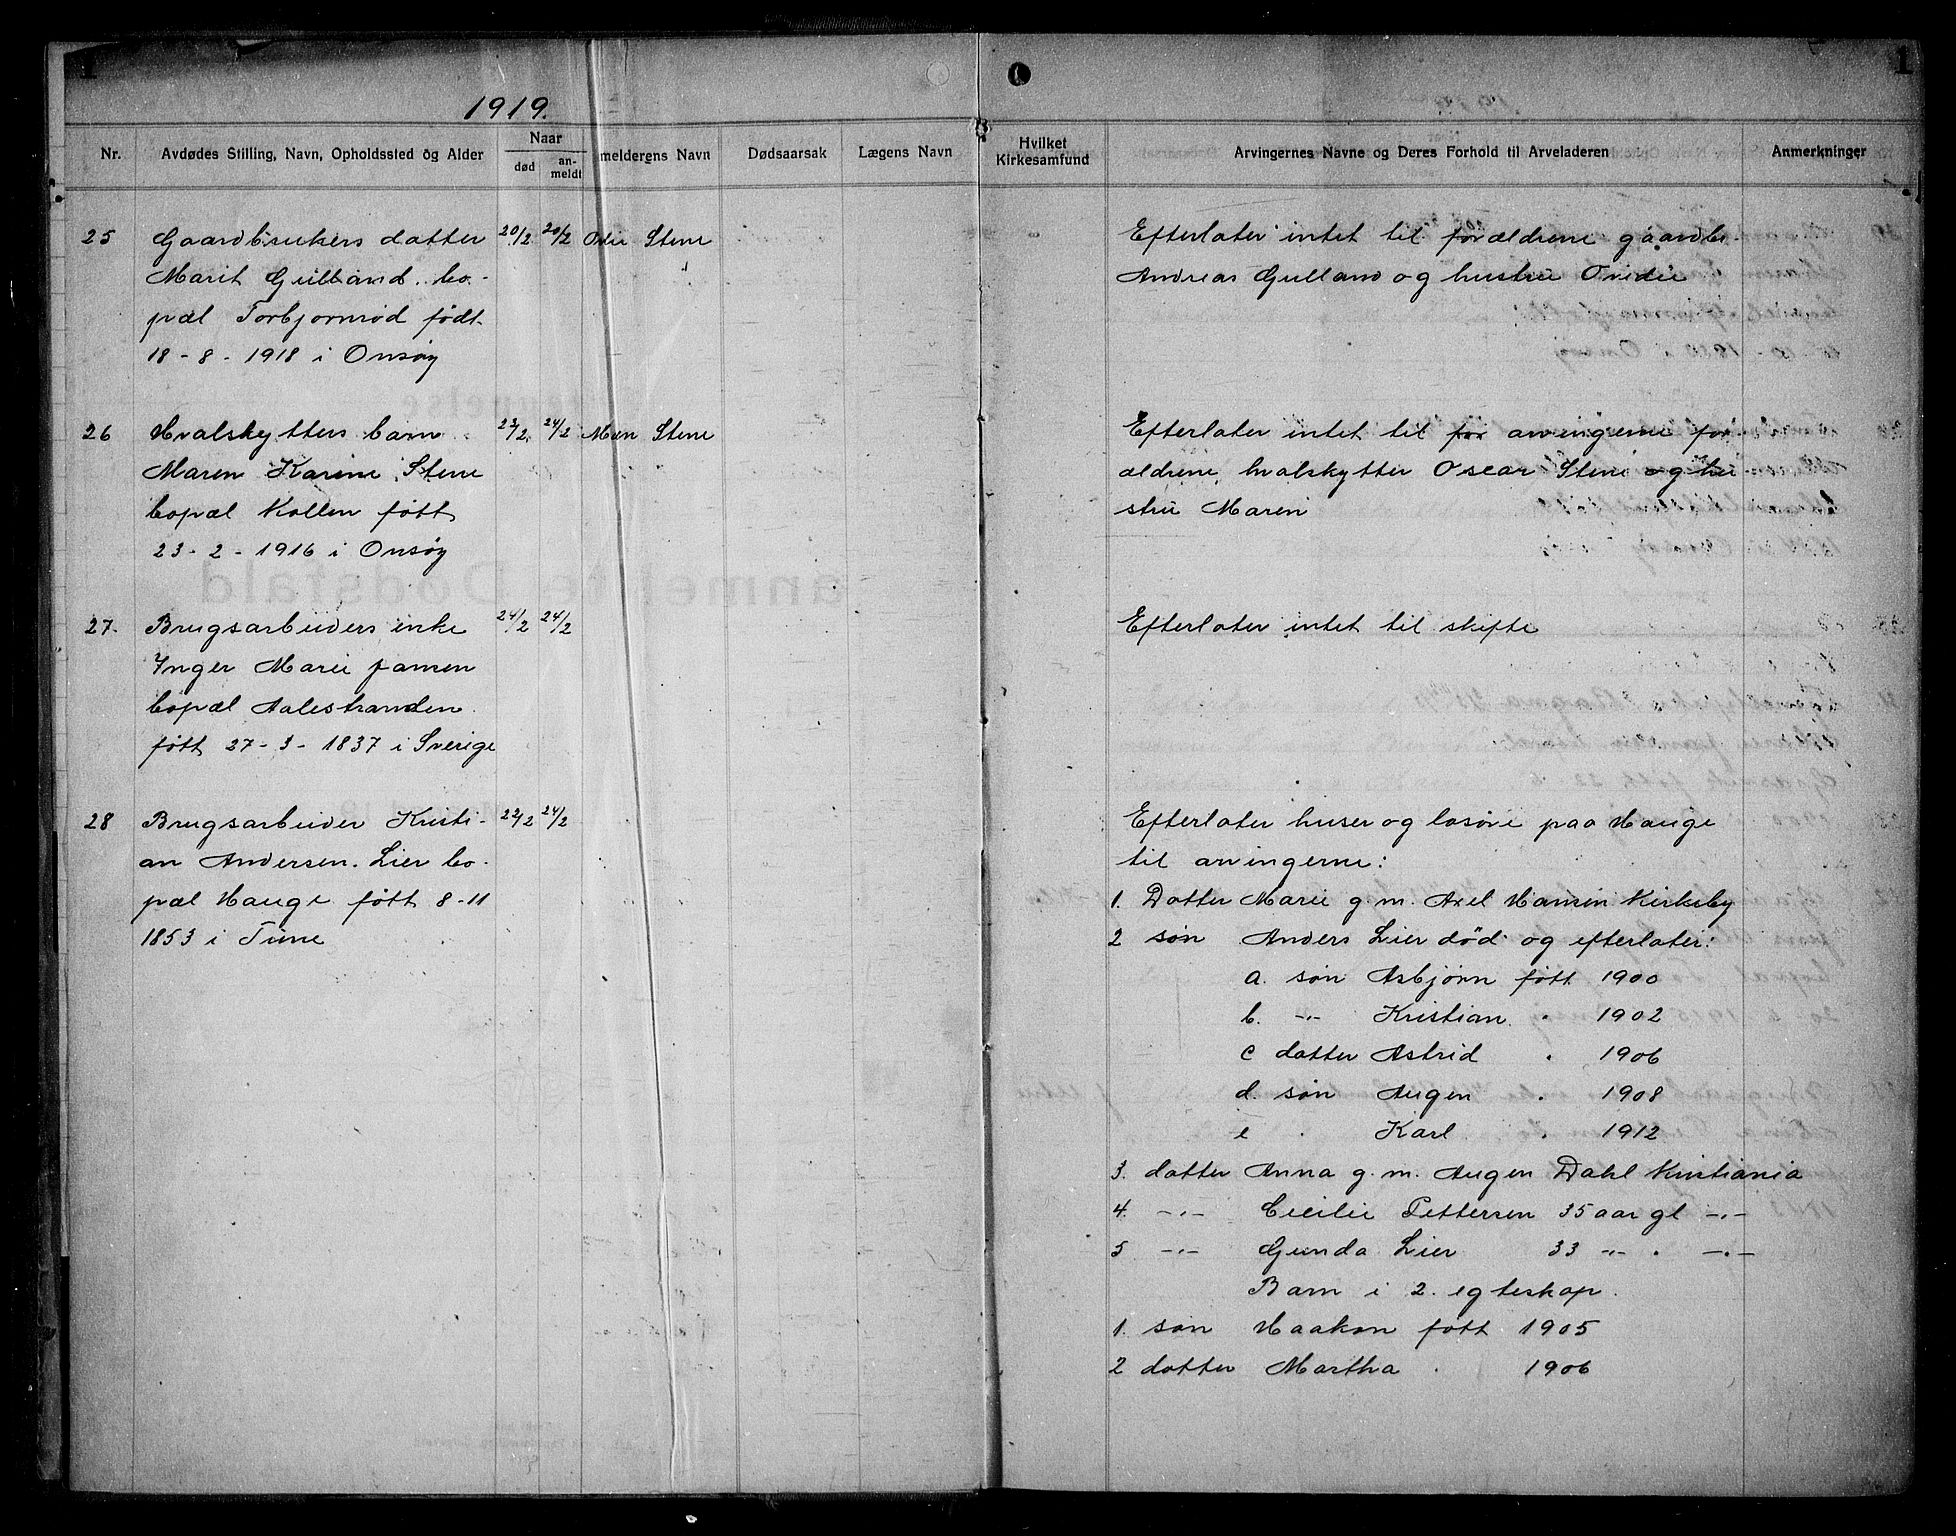 1
1
1919.
Nr.
Avdødes Stilling, Navn, Opholdssted og Alder
Naar
død
an-
meldt
melderens Navn
Dødsaarsak
Lægens Navn
Hvilket
Kirkesamfund
Arvingernes Navne og Deres Forhold til Arveladeren
Anmerkninger
25 Gaardbrukers datter 20/2 20/2 Stene
Marit Gulland bo-
pæl Torbjørnrød født
18-8-1918 i Onsøy
Efterlater intet til forældrene gaardbr.
Andreas Gulland og hustru Ovidie
26 Hvalskytters barn 23/2 24/2 Stene
Maren Karine Stene
bopæl Kollen født
23-2-1916 i Onsøy
Efterlater intet til for arvingerne for
ældrene, hvalskytter Oscar Stene og hu
stru Maren
27. Brugsarbeiders enke 24/2 24/2
Inger Marie Jansen
bopæl Aalestranden
født 27-3-1837 i Sverige
Efterlater intet til skifte
28 Brugsarbeider Kristi- 22/2 24/2
an Andersen Lier bo-
pæl Hauge født 8-11
1853 i Tune
Efterlater huser og løsøre paa Hauge
til arvingerne:
1. Datter Marie g.m. Axel Hansen Kirkeby
2 søn Anders Lier død og efterlater:
a. søn Asbjørn født 1900
b. -"- Kristian " 1902
c datter Astrid " 1906
d. søn Augen " 1908
e " Karl " 1912
3. datter Anna g.m. Augen Dahl Kristiania
4. -"- Cecilie Pettersen 35 aar gl -"-
5 -"- Gunda Lier 33 -"- " -"-
Barn i 2. egteskap.
1. søn Haakon født 1905
2 datter Martha " 1906